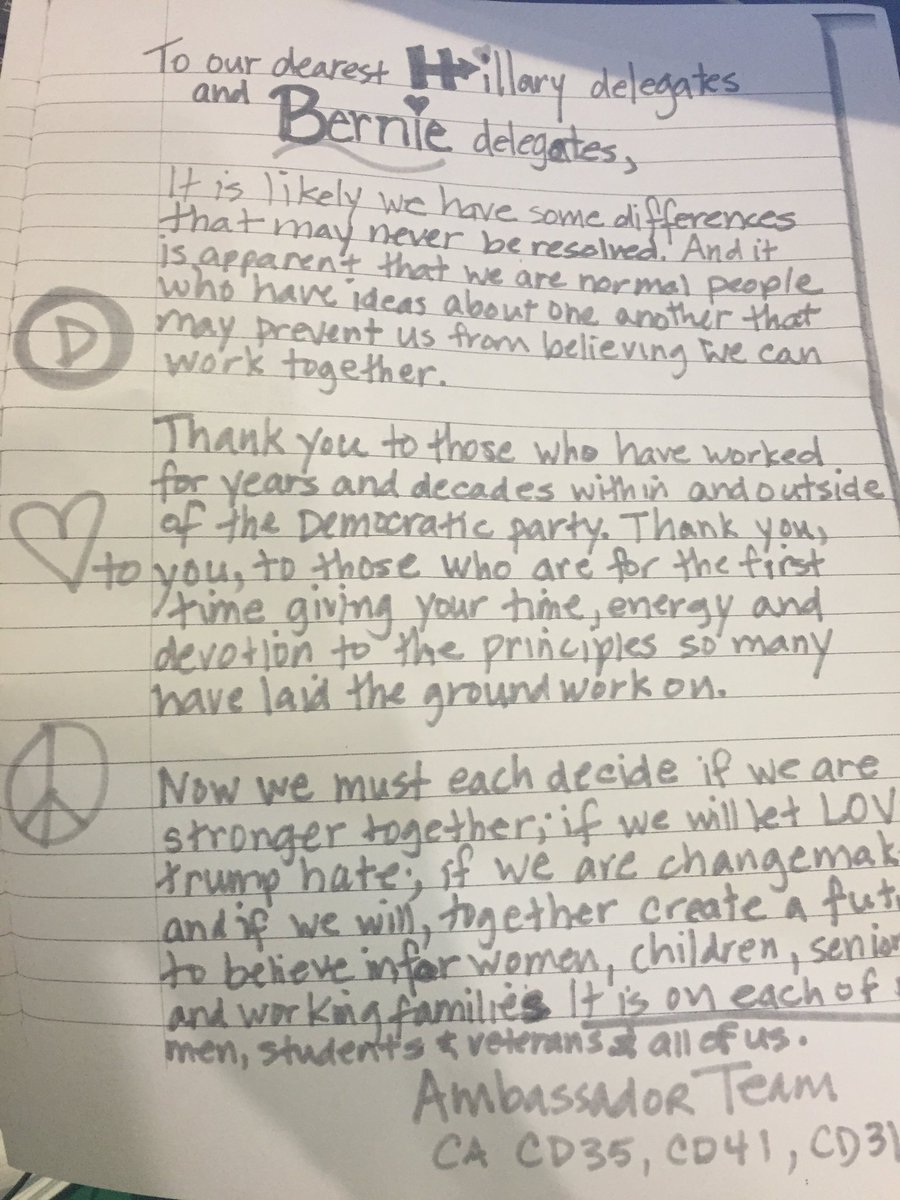 To our dearest Hillary delegates
and Bernie delegates,
It is likely we have some differences
that may never be resolved. And it
is apparent that we are normal people
who have ideas about one another that
may prevent us from believing we can
work together.
D
Thank you to those who have worked
for years and decades within and outside
of the Democratic party. Thank you,
to you, to those who are for the first
time giving your time, energy and
devotion to the principles so many
have laid the groundwork on.
Now we must each decide if we are
stronger together; if we will let LOV
trump hate; if we are changemak
and if we will, together create a fut
to believe in for women, children, senior
and working families It is on each of
men, students & veterans & all of us.
Ambassador Team
CA CD35, CD41, CD31